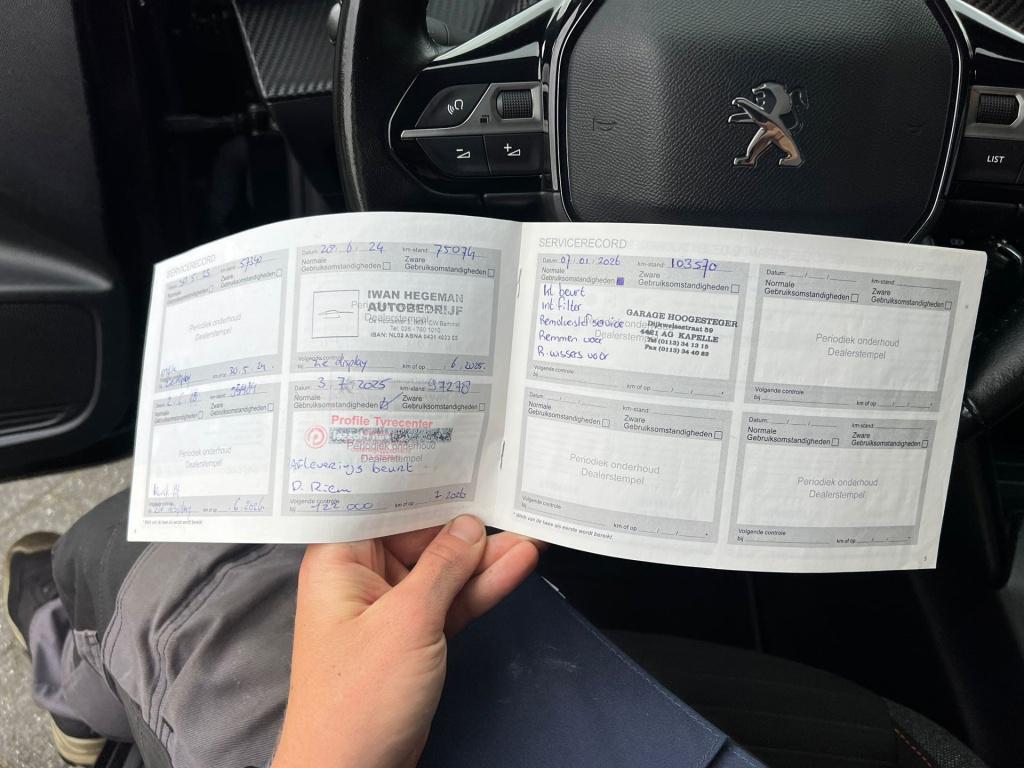 LIST
SERVICERECORD
Datum: 30.5.23 km-stand: 57340
Normale
Gebruiksomstandigheden
Zware
Periodiek onderhoud
Dealerstempel
km of op 30.5.24
Datum: 20.6.24 km-stand: 75074
Normale
Gebruiksomstandigheden
Zware
Gebruiksomstandigheden
IWAN HEGEMAN
AUTOBEDRIJF
Dealerstempel
Volgende controle
bij zie display km of op 6.2025.
Zware
Gebruiksomstandigheden
Periodiek onderhoud
Dealerstempel
Volgende controle
6.2026
* Welk van de twee als eerste wordt bereikt.
Datum: 3.7.2025 km-stand: 97278
Normale
Gebruiksomstandigheden
Zware
Gebruiksomstandigheden
Profile Tyrecenter
Periodiek onderhoud
Dealerstempel
Afleverings beurt
Volgende controle
bij 122.000 km of op 7.2026
SERVICERECORD
Datum: 07.01.2026 km-stand: 103570
Normale
Gebruiksomstandigheden
Zware
Gebruiksomstandigheden
kl beurt
Int filter
Remvloeistof service
Remmen voor
R.wissers voor
GARAGE HOOGESTEGER
Dijkwelsestraat 59
4421 AG KAPELLE
Tel (0113) 34 13 15
Fax (0113) 34 40 82
Volgende controle
bij km of op
Datum: km-stand:
Normale
Gebruiksomstandigheden
Zware
Gebruiksomstandigheden
Periodiek onderhoud
Dealerstempel
Volgende controle
bij km of op
Datum: km-stand:
Normale
Gebruiksomstandigheden
Zware
Gebruiksomstandigheden
Periodiek onderhoud
Dealerstempel
Volgende controle
bij km of op
* Welk van de twee als eerste wordt bereikt.
Datum: km-stand:
Normale
Gebruiksomstandigheden
Zware
Gebruiksomstandigheden
Periodiek onderhoud
Dealerstempel
Volgende controle
bij km of op